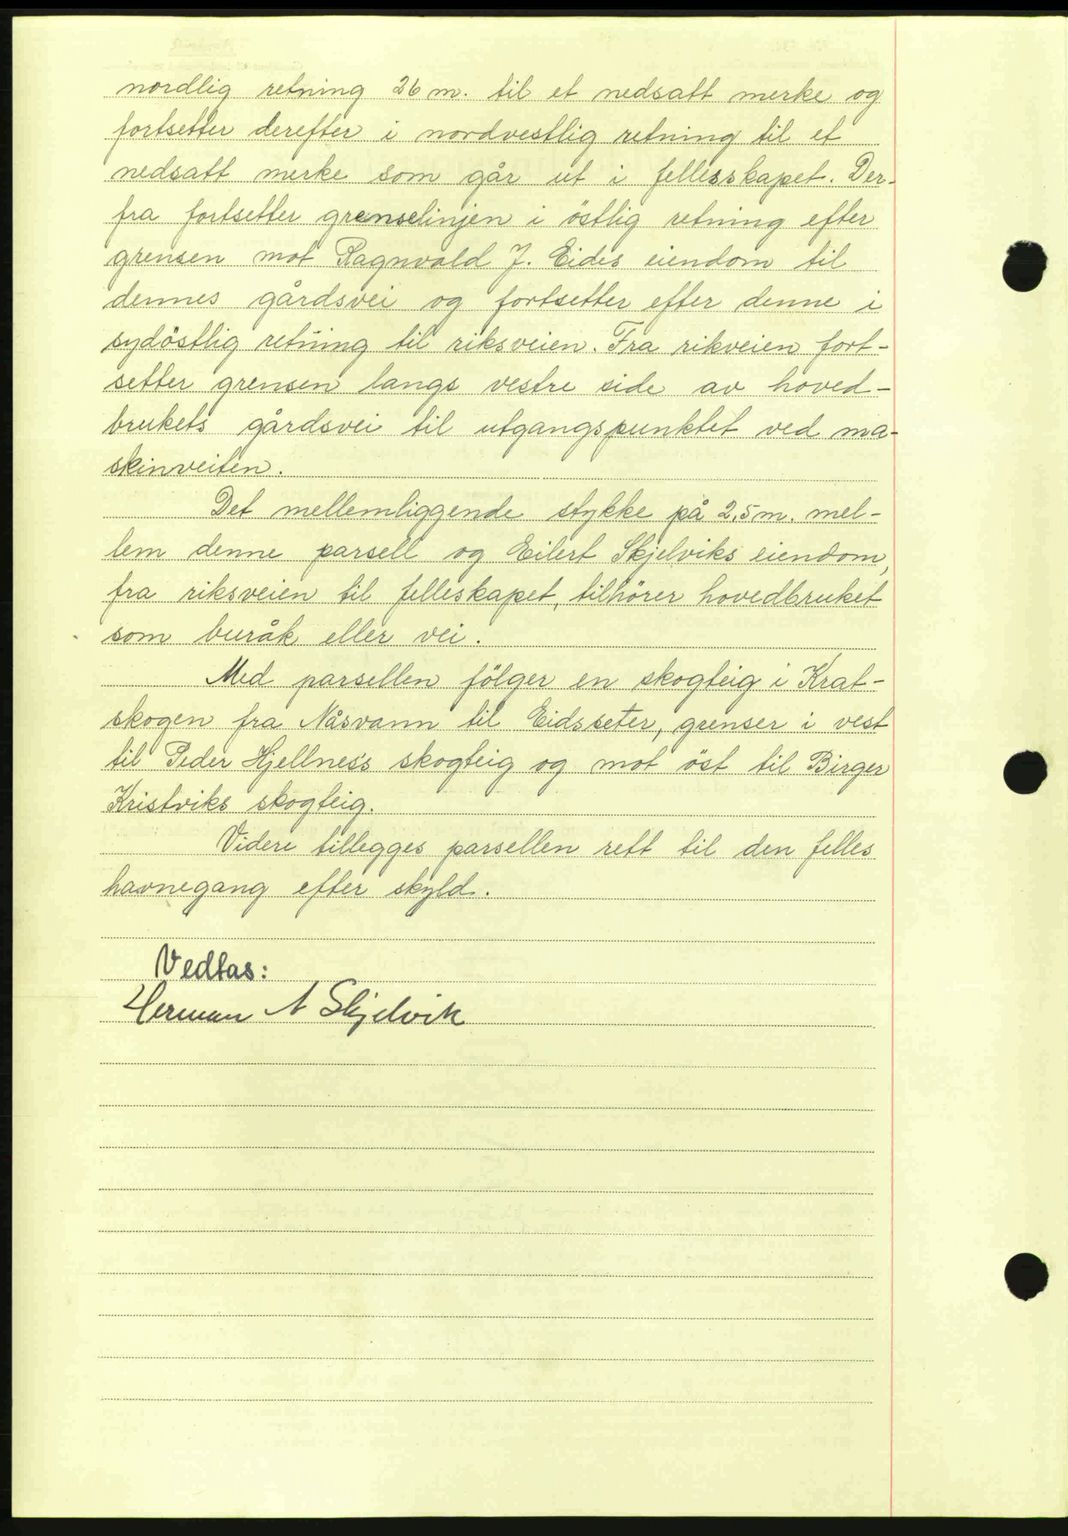 nordlig retning 26 m. til et nedsatt merke og
fortsetter derefter i nordvestlig retning til et
nedsatt merke som går ut i fellesskapet. Der-
fra fortsetter grenselinjen i östlig retning efter
grensen mot Ragnvald J. Eides eiendom til
dennes gårdsvei og fortsetter efter denne i
sydöstlig retning til riksveien. Fra rikveien fort-
setter grensen langs vestre side av hoved-
brukets gårdsvei til utgangspunktet ved ma-
skinveiten.
Det mellemliggende stykke på 2,5 m. mel-
lem denne parsell og Eilert Skjelviks eiendom,
fra riksveien til felleskapet, tilhörer hovedbruket
som buråk eller vei.
Med parsellen fölger en skogteig i Krat-
skogen fra Nåsvann til Eidsseter, grenser i vest
til Peder Hjellness skogteig og mot öst til Birger
Kristviks skogteig.
Videre tillegges parsellen rett til den felles
havnegang efter skyld.
Vedtas:
Herman A Skjelvik